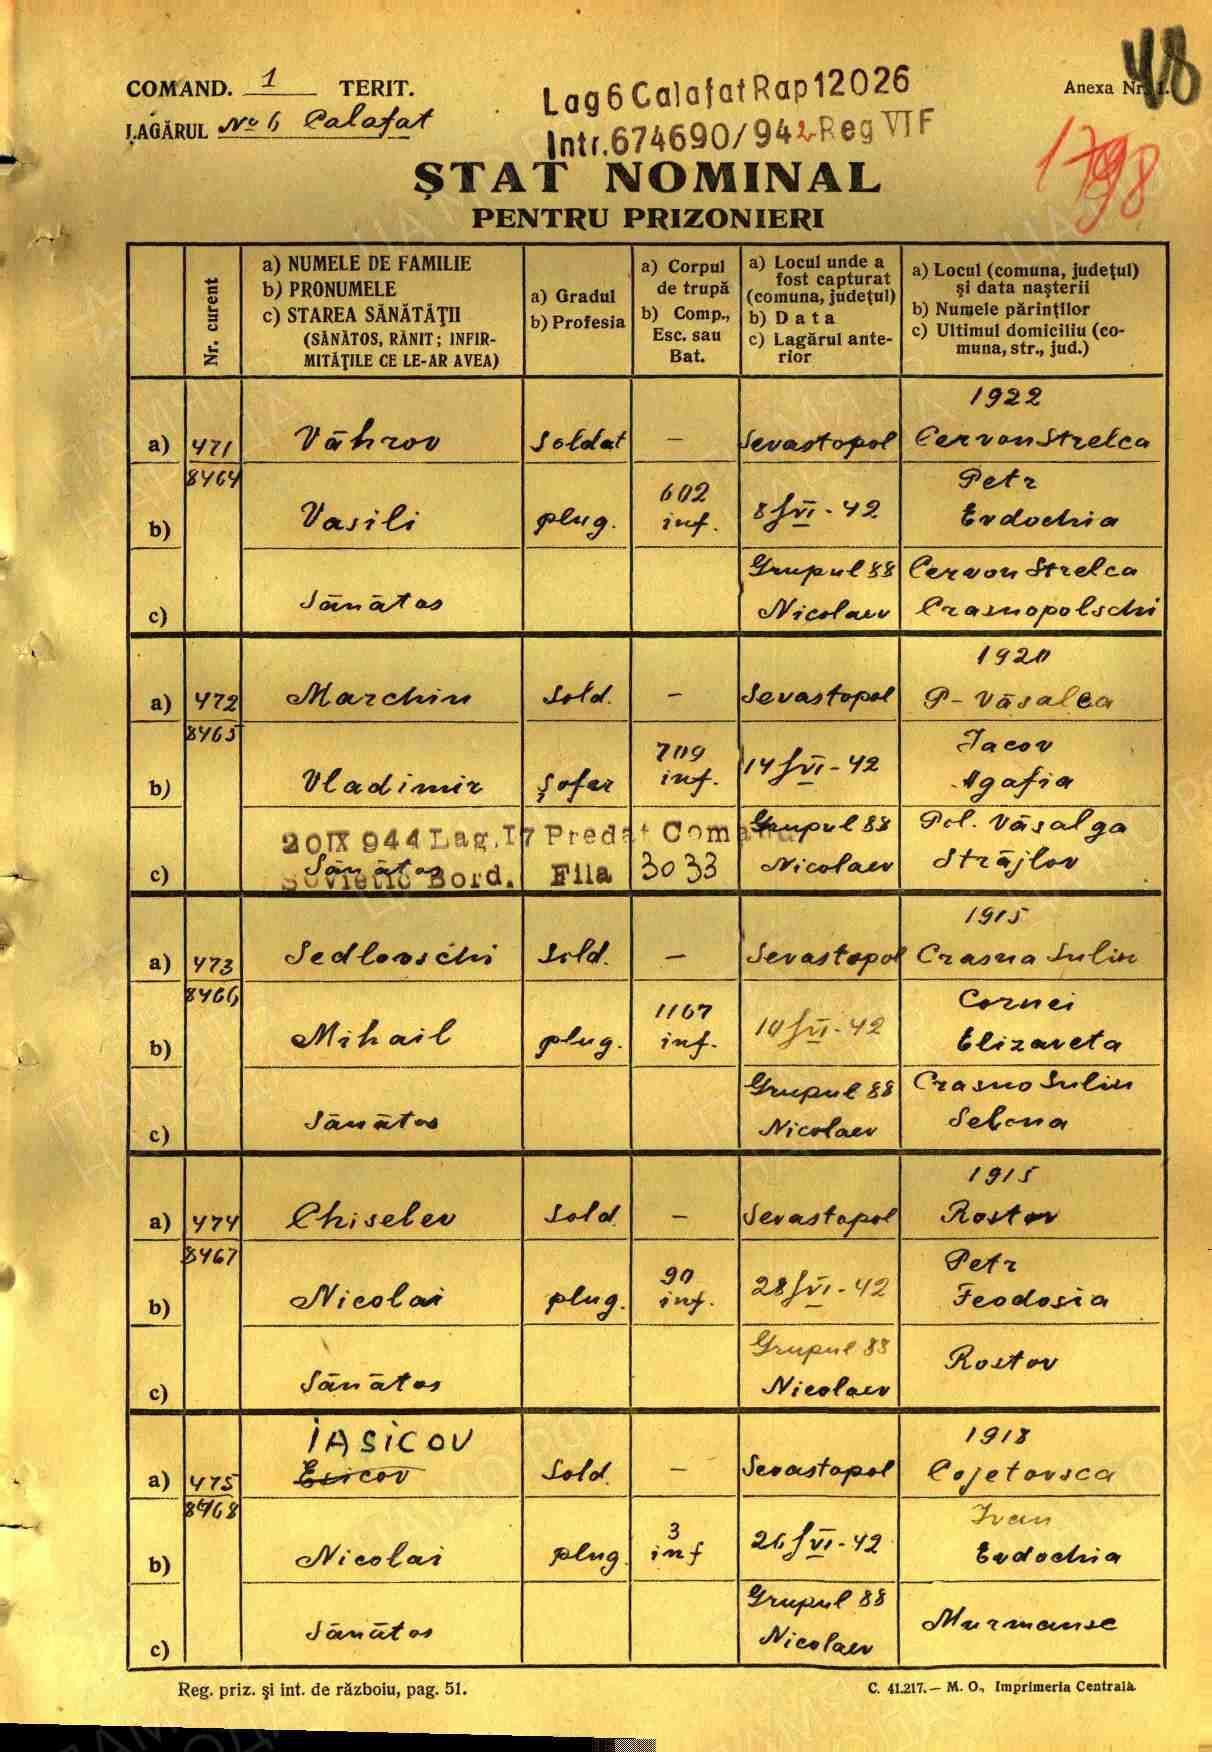 COMAND. 1 TERIT.
LAGĂRUL No 6 Calafat
Lag 6 Calafat Rap 12026
Intr. 674690/942 Reg VI F
Anexa Nr. 1.
48
1798
ȘTAT NOMINAL
PENTRU PRIZONIERI
Nr. curent
a) NUMELE DE FAMILIE
b) PRONUMELE
c) STAREA SĂNĂTĂȚII
(SĂNĂTOS, RĂNIT; INFIR-
MITĂȚILE CE LE-AR AVEA)
a) Gradul
b) Profesia
a) Corpul
de trupă
b) Comp.,
Esc. sau
Bat.
a) Locul unde a
fost capturat
(comuna, județul)
b) Data
c) Lagărul ante-
rior
a) Locul (comuna, județul)
și data nașterii
b) Numele părinților
c) Ultimul domiciliu (co-
muna, str., jud.)
1922
a) 471 Văhrov Soldat — Sevastopol Cervon Strelca
8464
b) Vasili plug. 602 inf. 8/VI-42 Petr
Evdochia
c) Sănătos Grupul 88 Cervon Strelca
Nicolaev Crasnopolschi
1920
a) 472 Marchin Sold. — Sevastopol P-Văsalca
8465
b) Vladimir Șofer 709 inf. 14/VI-42 Iacov
Agafia
c) Sănătos Grupul 88 Pol. Văsalga
Nicolaev Străjlov
20 IX 944 Lag. 17 Predat Comand.
Sovietic Bord. Fila 3033
1915
a) 473 Sedlovschi Sold. — Sevastopol Crasna Sulin
8466
b) Mihail plug. 1167 inf. 10/VI-42 Cornei
Elizaveta
c) Sănătos Grupul 88 Crasno Sulin
Nicolaev Selona
1915
a) 474 Chiselev Sold. — Sevastopol Rostov
8467
b) Nicolai plug. 90 inf. 28/VI-42 Petr
Feodosia
c) Sănătos Grupul 88 Rostov
Nicolaev
IASICOV 1918
a) 475 Esicov Sold. — Sevastopol Cojetovsca
8468
b) Nicolai plug. 3 inf 26/VI-42 Ivan
Evdochia
c) Sănătos Grupul 88 Murmansc
Nicolaev
Reg. priz. și int. de războiu, pag. 51.
C. 41.217.— M. O., Imprimeria Centrală.